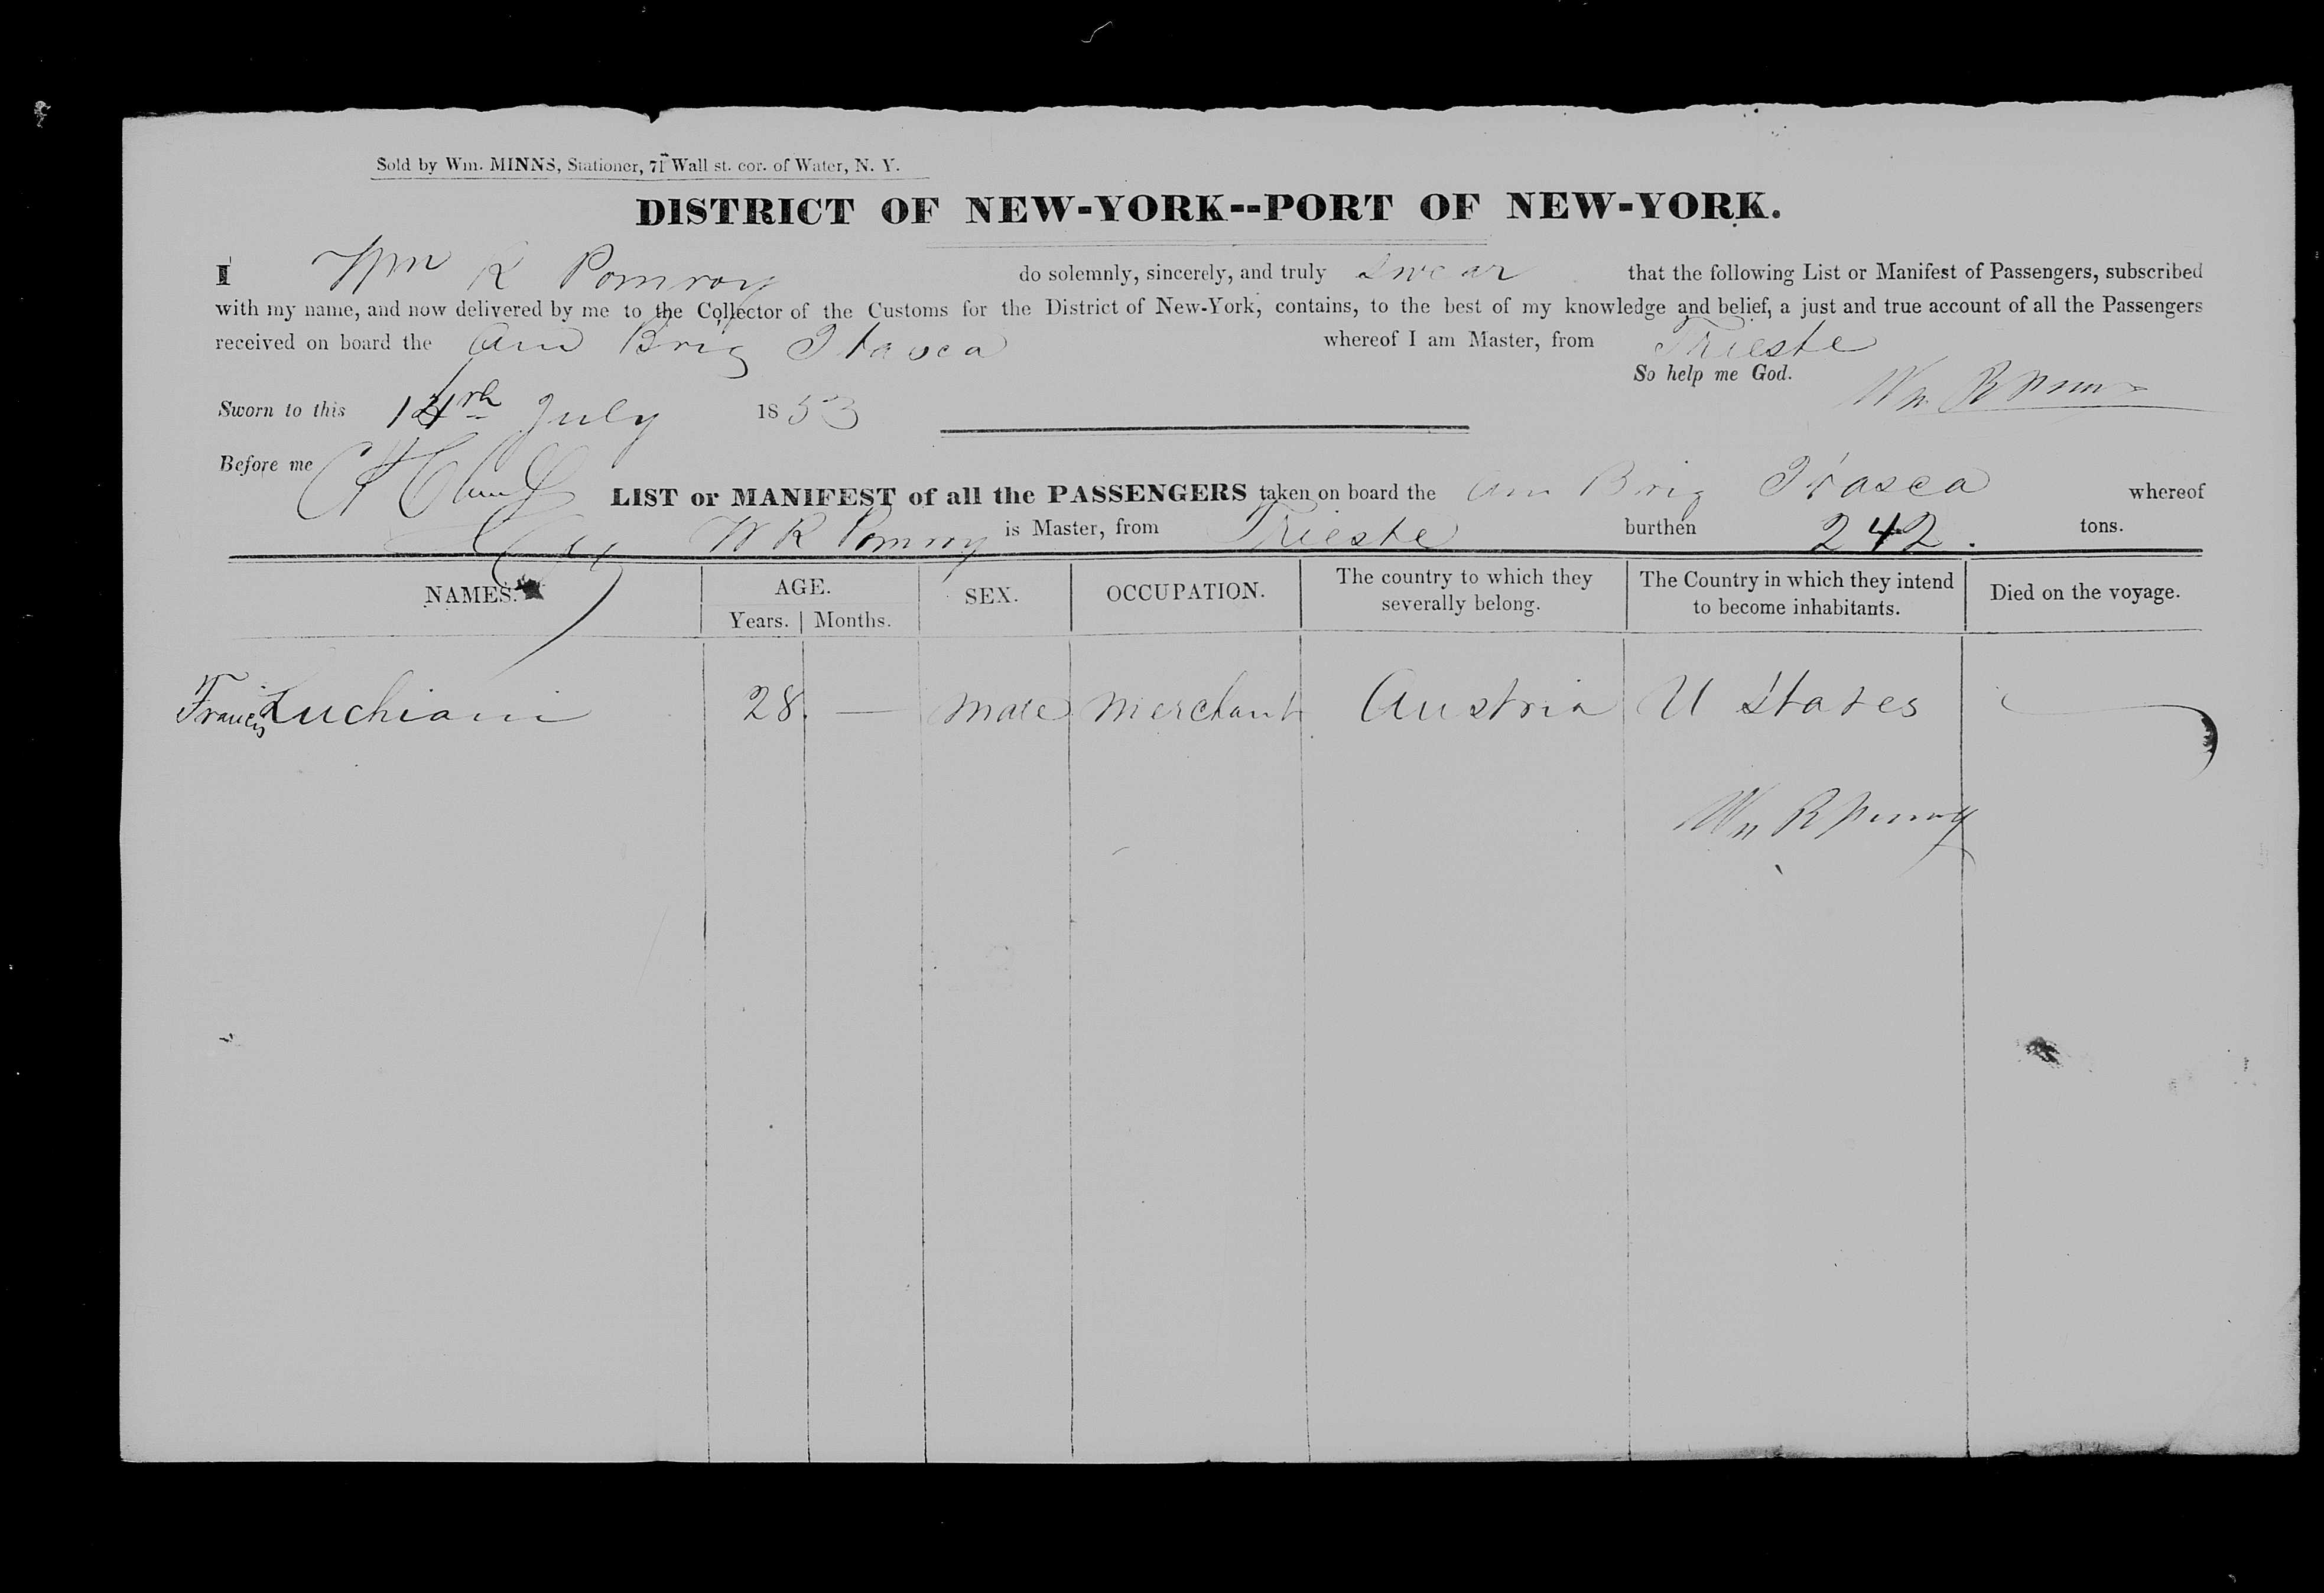 Sold by Wm. MINNS, Stationer, 71 Wall st. cor. of Water, N. Y.
DISTRICT OF NEW-YORK--PORT OF NEW-YORK.
I Wm R Pomroy do solemnly, sincerely, and truly swear that the following List or Manifest of Passengers, subscribed
with my name, and now delivered by me to the Collector of the Customs for the District of New-York, contains, to the best of my knowledge and belief, a just and true account of all the Passengers
received on board the Am Brig Itasca whereof I am Master, from Trieste
So help me God. Wm R Pomroy
Sworn to this 14th July 1853
Before me
LIST or MANIFEST of all the PASSENGERS taken on board the Am Brig Itasca whereof
W R Pomroy is Master, from Trieste burthen 242. tons.
NAMES. AGE. Years. Months. SEX. OCCUPATION. The country to which they severally belong. The Country in which they intend to become inhabitants. Died on the voyage.
Francis Luchiani 28. — male merchant Austria U States
Wm R Pomroy